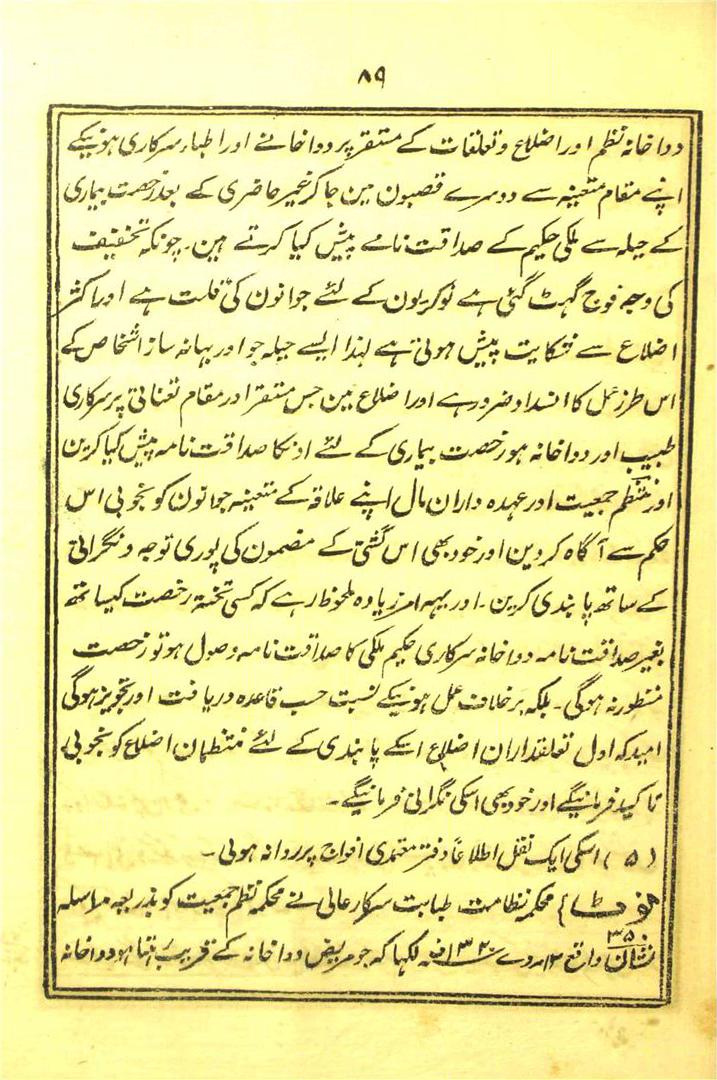 ۸۹
دواخانہ نظم اور اضلاع و تعلقات کے مستقر پر دواخانے اور اطباء سرکاری ہونیکے
اپنے مقام متعینہ سے دوسرے قصبون مین جاکر غیر حاضری کے بعد رخصت بیماری
کے حیلہ سے ملکی حکیم کے صداقت نامے پیش کیا کرتے ہین۔ چونکہ تخفیف
کی وجہ فوج گہٹ گئی ہے نوکریون کے لئے جوانون کی قلت ہے اور اکثر
اضلاع سے شکایت پیش ہوتی ہے لہذا ایسے حیلہ جو اور بہانہ ساز اشخاص کے
اس طرز عمل کا انسداد ضرور ہے اور اضلاع مین جس مستقر اور مقام تعناتی پر سرکاری
طبیب اور دواخانہ ہو رخصت بیماری کے لئے اونکا صداقت نامہ پیش کیا کرین
اور منتظم جمعیت اور عہدہ داران مال اپنے علاقہ کے متعینہ جوانون کو بخوبی اس
حکم سے آگاہ کردین اور خود بھی اس گشتی کے مضمون کی پوری توجہ و نگرانی
کے ساتھ پابندی کرین۔ اور یہہ امر زیادہ ملحوظ رہے کہ کسی تختۂ رخصت کیساتھ
بغیر صداقت نامہ دواخانہ سرکاری حکیم ملکی کا صداقت نامہ وصول ہو تو رخصت
منظور نہ ہوگی۔ بلکہ برخلاف عمل ہونیکے نسبت حسب قاعدہ دریافت اور تجویز ہوگی
امید کہ اول تعلقداران اضلاع اسکے پابندی کے لئے منتظمان اضلاع کو بخوبی
تاکید فرمائینگے اور خود بھی اسکی نگرانی فرمائینگے۔
(۵) اسکی ایک نقل اطلاعاً دفتر معتمدی افواج پر روانہ ہوئی۔
نوٹ } محکمہ نظامت طبابت سرکار عالی نے محکمہ نظم جمعیت کو بذریعہ مراسلہ
نشان ۳۵ واقع ۱۲ مہ دے ۱۳۲۰ ف لکہا کہ جو مریض دواخانہ کے قریب رہتا ہو دواخانہ